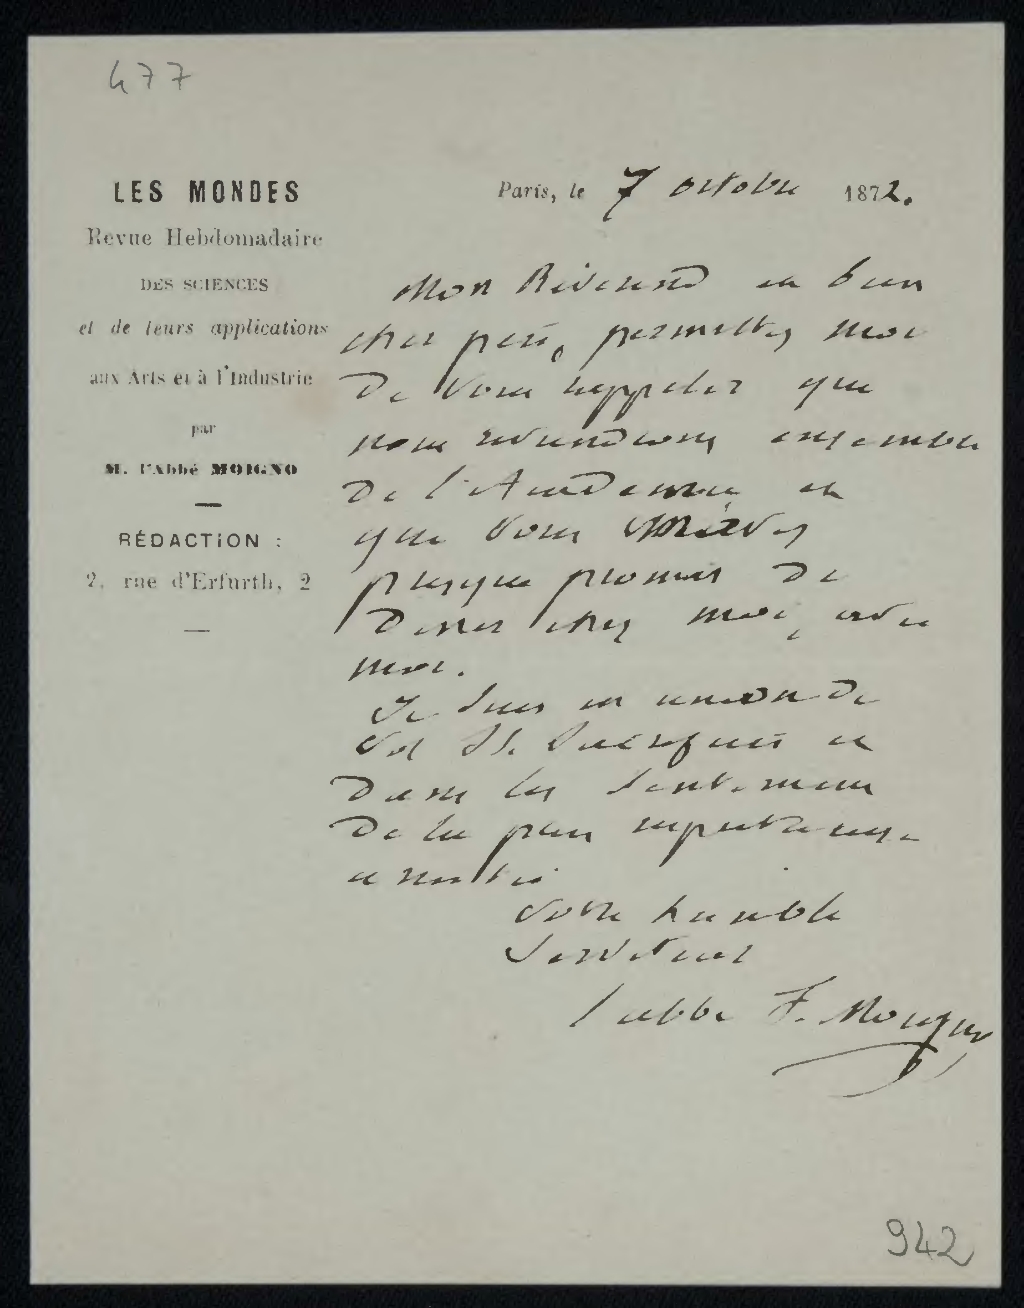 477
LES MONDES
Revue Hebdomadaire
DES SCIENCES
et de leurs applications
aux Arts et à l'Industrie
par
M. l'Abbé MOIGNO
RÉDACTION :
2, rue d'Erfurth, 2
Paris, le 7 octobre 1872.
Mon Révérend et bien
cher père, permettez moi
de vous rappeler que
nous reviendrons ensemble
de l'Académie et
que vous m'avez
presque promis de
diner chez moi, avec
moi.
Je suis en union de
vos SS. Sacrifices et
dans les sentiments
de la plus respectueuse
amitié
votre humble
serviteur
l'abbé F. Moigno
942